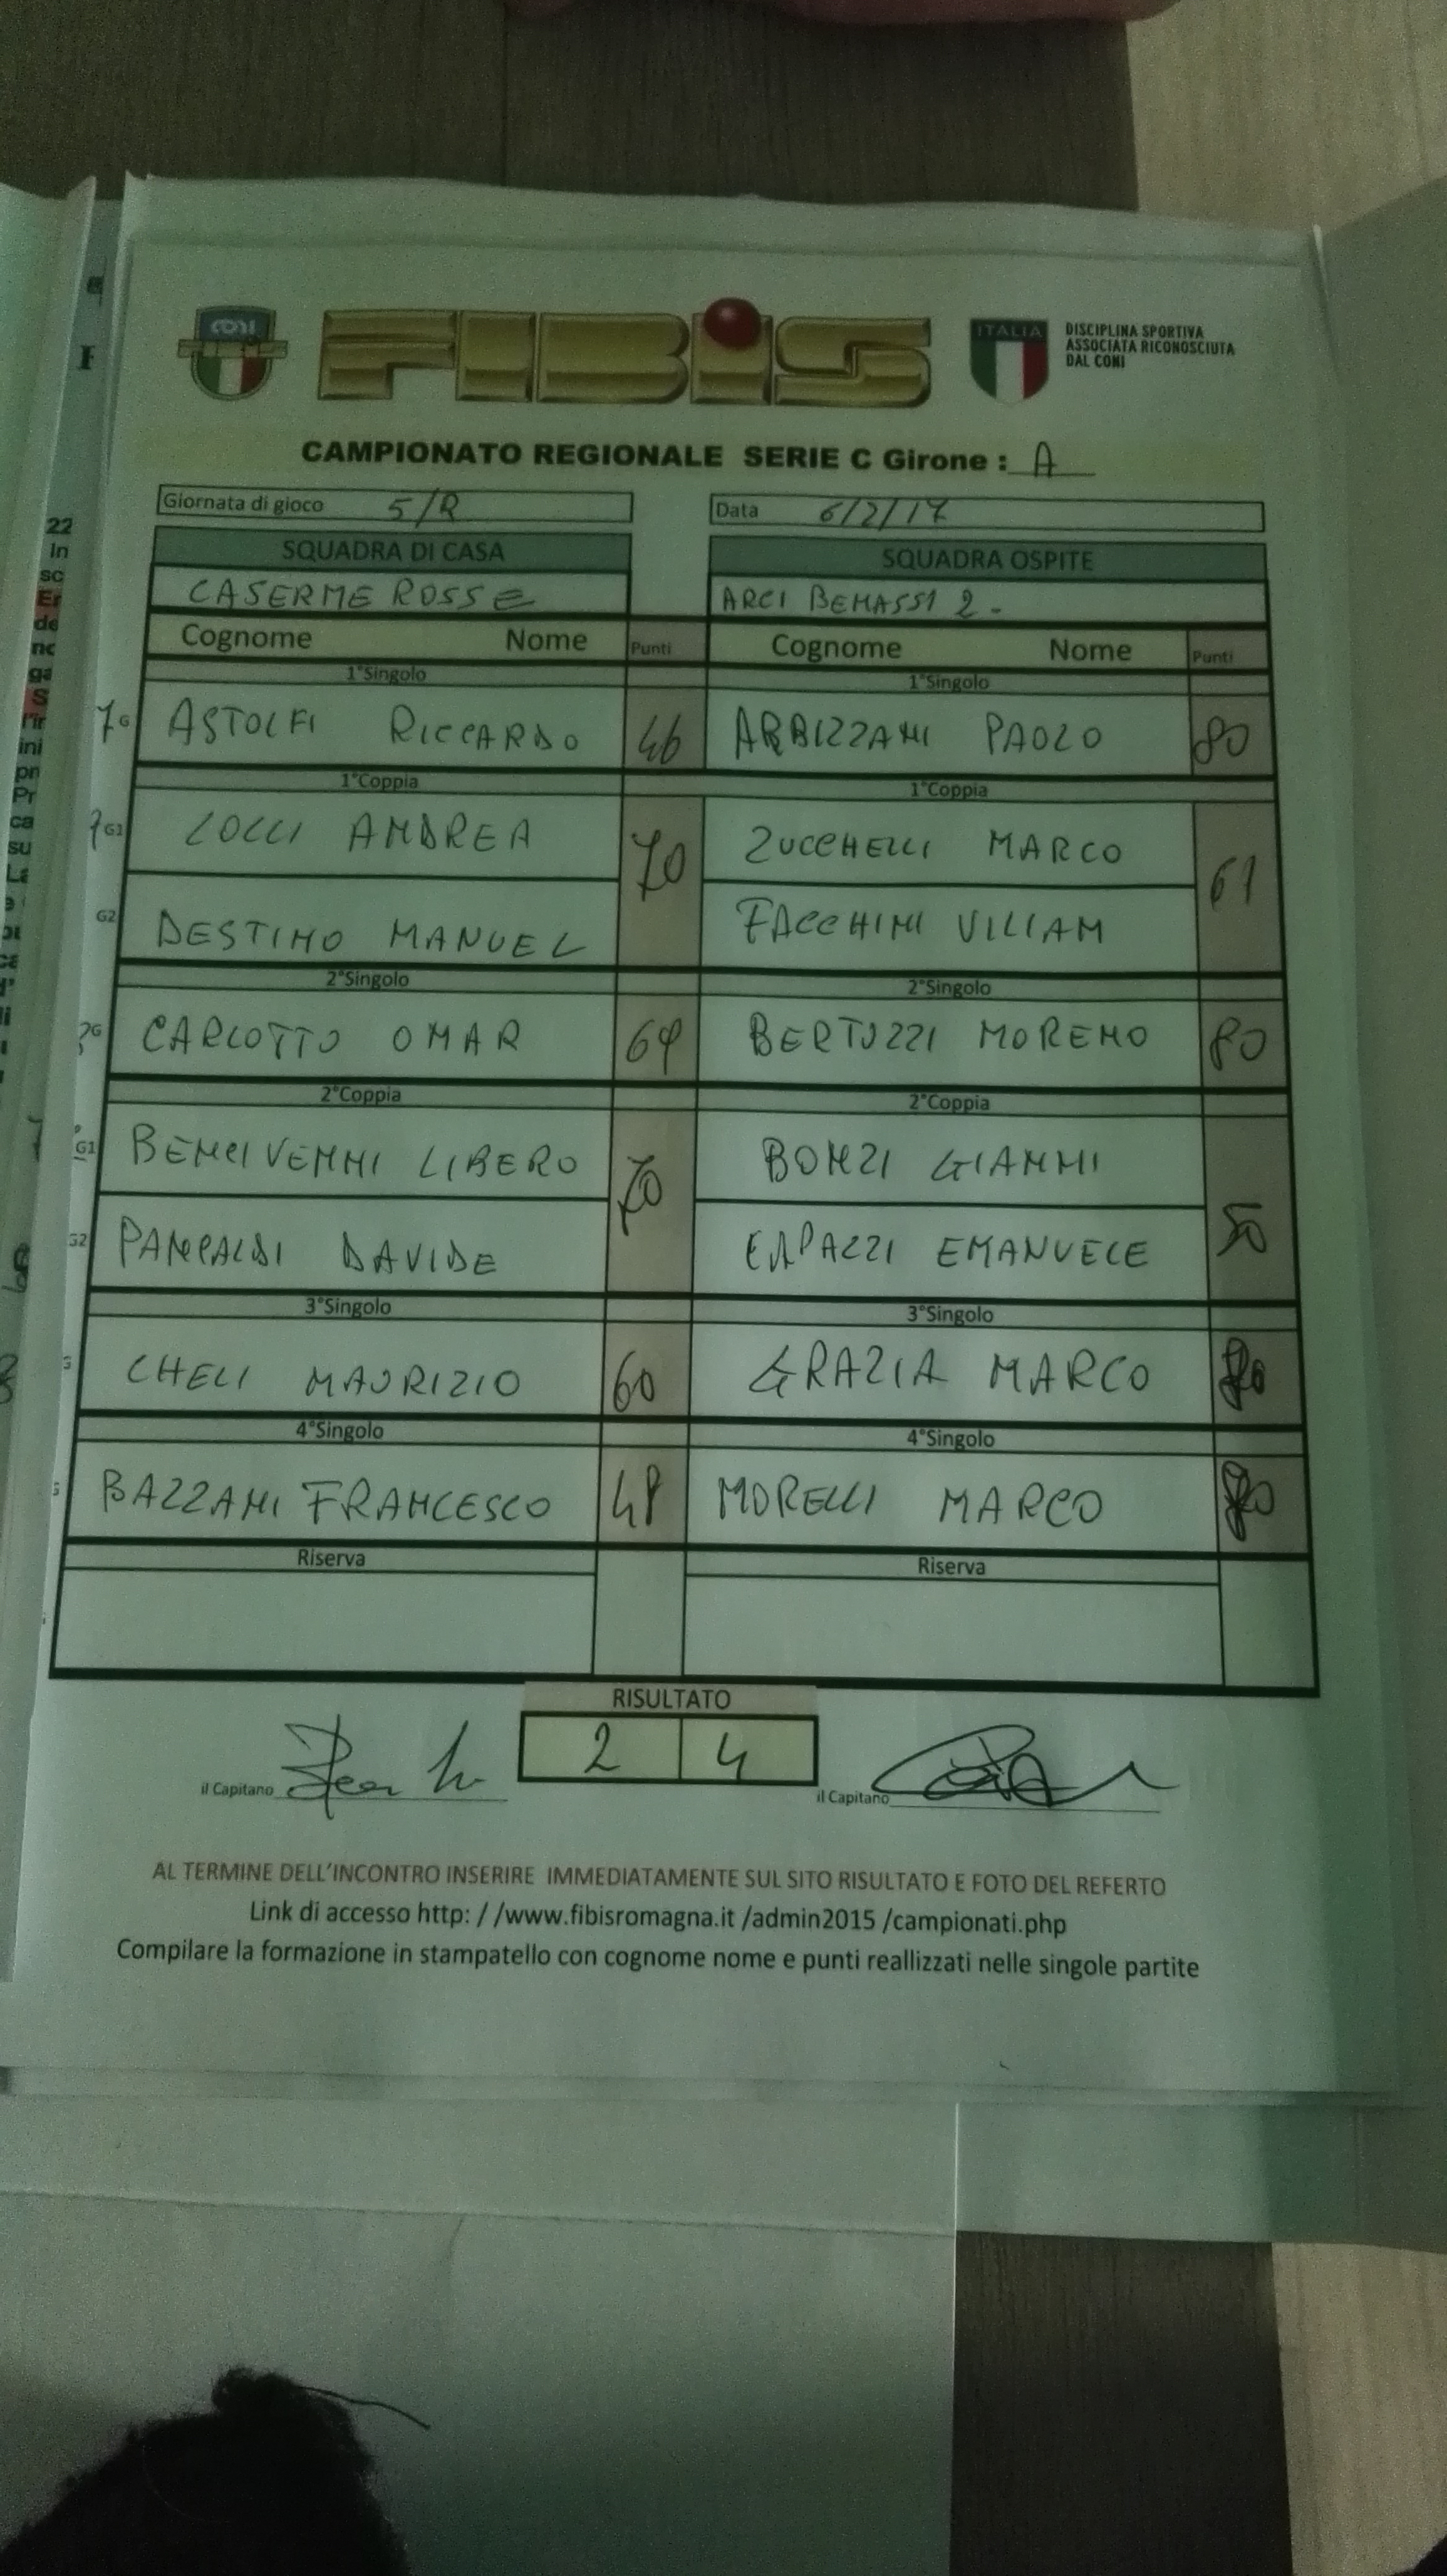 CONI
FIBIS
ITALIA
DISCIPLINA SPORTIVA
ASSOCIATA RICONOSCIUTA
DAL CONI
CAMPIONATO REGIONALE SERIE C Girone : A
Giornata di gioco 5/R Data 6/2/17
SQUADRA DI CASA SQUADRA OSPITE
CASERME ROSSE ARCI BENASSI 2 -
Cognome Nome Punti Cognome Nome Punti
1°Singolo 1°Singolo
G ASTOLFI RICCARDO 46 ARBIZZANI PAOLO 80
1°Coppia 1°Coppia
G1 LOLLI ANDREA 70 ZUCCHELLI MARCO 61
G2 DESTINO MANUEL FACCHINI VILLIAM
2°Singolo 2°Singolo
G CARLOTTO OMAR BERTUZZI MORENO 80
2°Coppia 2°Coppia
G1 BENCIVENNI LIBERO 70 BONZI GIANNI 50
G2 DAVIDE EMANUELE
3°Singolo 3°Singolo
CHELI MAURIZIO 60 GRAZIA MARCO
4°Singolo 4°Singolo
BAZZANI FRANCESCO 48 MORELLI MARCO
Riserva Riserva
RISULTATO
2 4
il Capitano il Capitano
AL TERMINE DELL'INCONTRO INSERIRE IMMEDIATAMENTE SUL SITO RISULTATO E FOTO DEL REFERTO
Link di accesso http: / /www.fibisromagna.it /admin2015 /campionati.php
Compilare la formazione in stampatello con cognome nome e punti reallizzati nelle singole partite